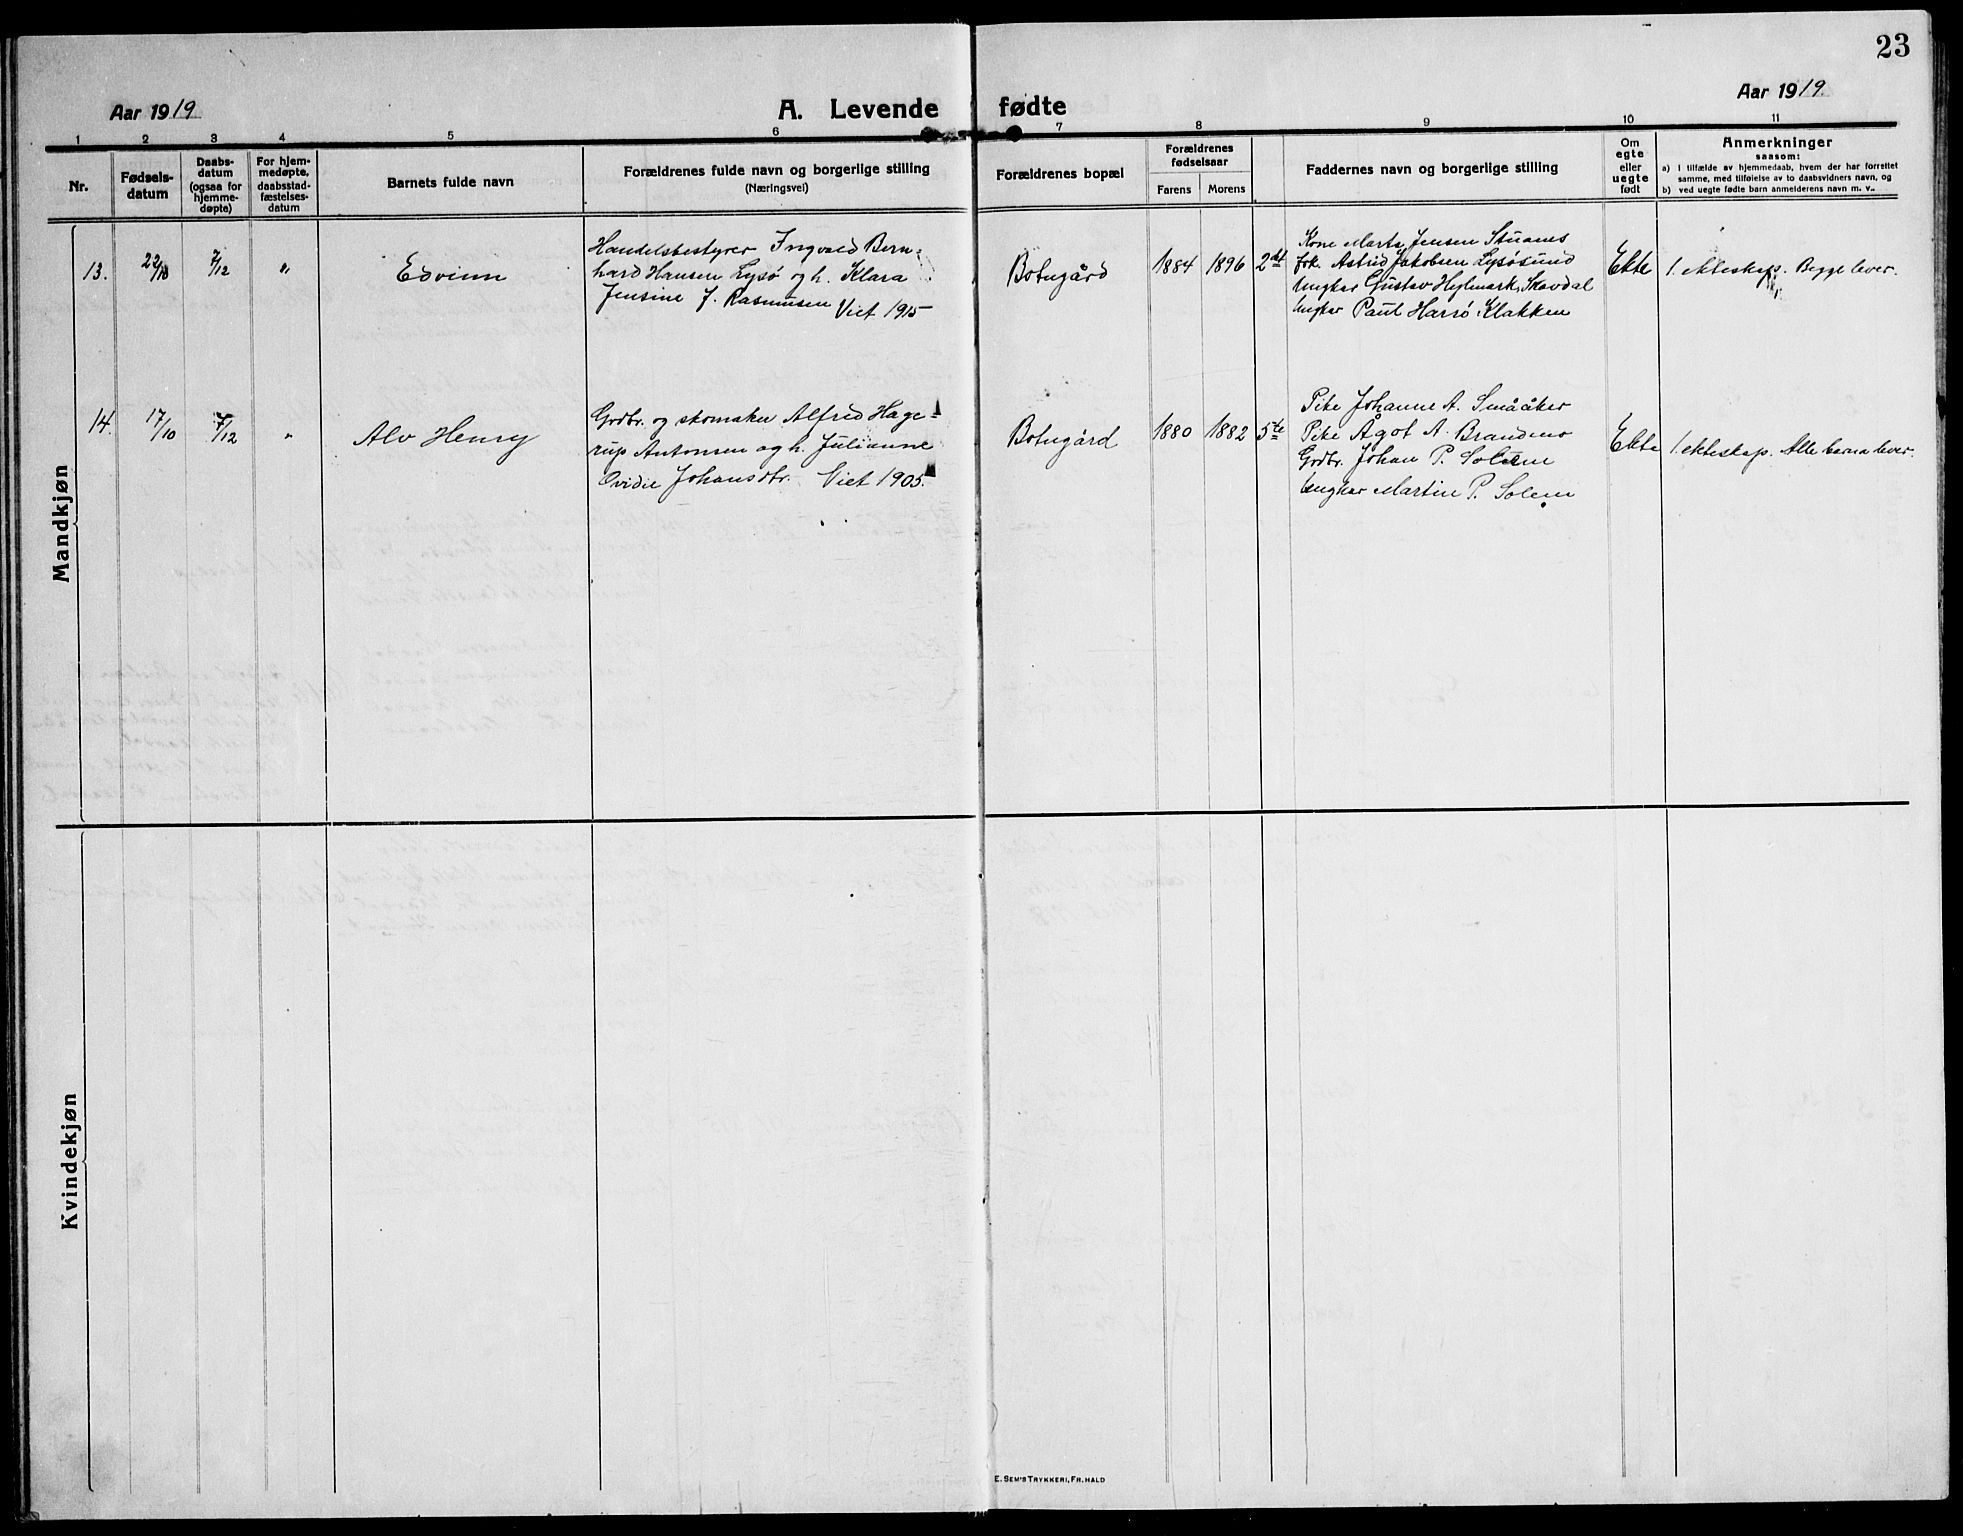 23
Aar 1919
A. Levende fødte
Aar 1919.
1 2 3 4 5 6 7 8 9 10 11
Nr.
Fødsels-
datum
Daabs-
datum
(ogsaa for
hjemme-
døpte)
For hjem-
medøpte,
daabsstad-
fæstelses-
datum
Barnets fulde navn
Forældrenes fulde navn og borgerlige stilling
(Næringsvei)
Forældrenes bopæl
Forældrenes
fødselsaar
Farens Morens
Faddernes navn og borgerlige stilling
Om
egte
eller
uegte
født
Anmerkninger
saasom:
a) I tilfælde av hjemmedaab, hvem der har forrettet
samme, med tilføielse av to daabsvidners navn, og
b) ved uegte fødte barn anmelderens navn m. v..
Mandkjøn
13.
22/10
7/12
"
Edvinn
Handelsbestyrer Ingvald Bern-
hard Hansen Lysø og h. Klara
Jensine J. Rasmusen Viet 1915
Botngård
1884
1896
2det
Kone Marta Jensen Stuanes
frk. Astrid Jakobsen Lysøsund
Ungkar Gustav Hylmark, Skavdal
Ungkar Paul Harsø, Klakken
Ekte
1. ekteskap. Begge lever.
14.
17/10
7/12
"
Alv Henry
Grdbr. og skomaker Alfred Hage-
rup Antonsen og h. Julianne
Ovidie Johansdtr. Viet 1905.
Botngård
1880
1882
5te
Pike Johanne A. Småaker
Pike Ågot A. Brandmo
Grdbr. Johan P. Solem
Ungkar Martin P. Solem
Ekte
1. ekteskap. Alle barna lever.
Kvindekjøn
E. SEM'S TRYKKERI, FR.HALD